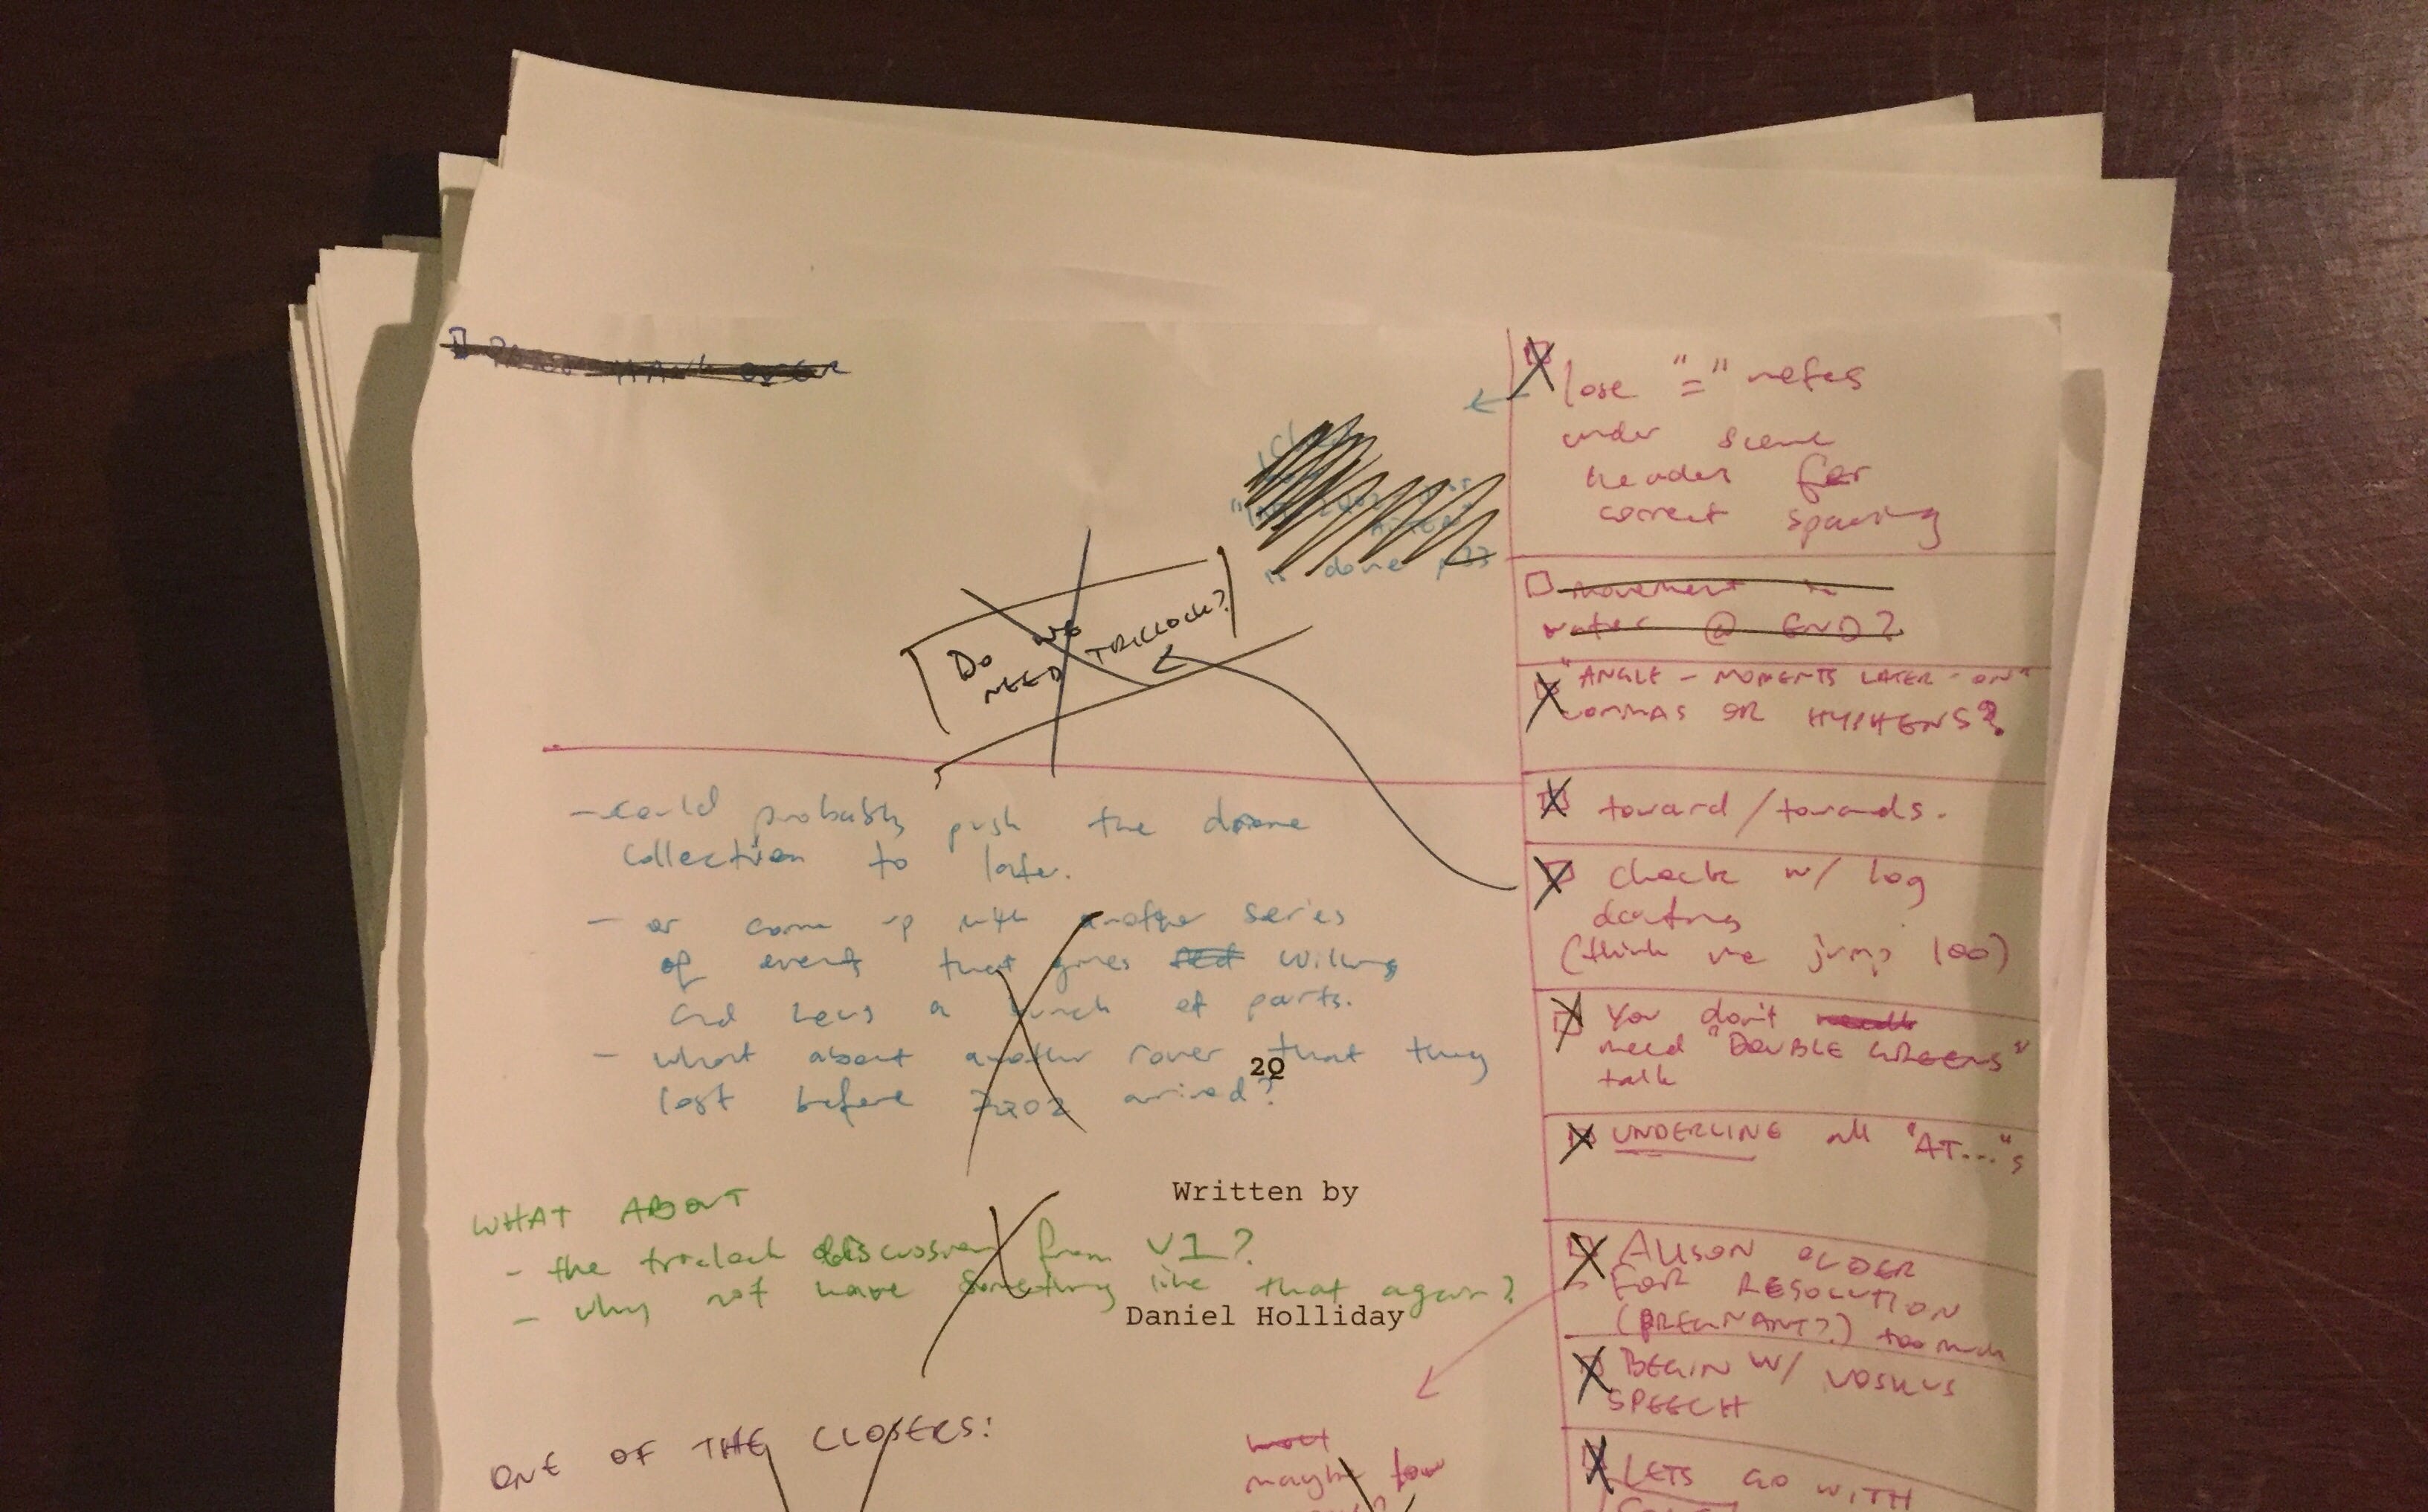 is done p33
Do we
NEED TRICLOCK?
- could probably push the drone
collection to later.
- or come up with another series
of events that gives Wilkins
and a bunch of parts.
- what about another rover that they
lost before arrived?
2Q
WHAT ABOUT
- the discussion from V1?
- why not have something like that again?
Written by
Daniel Holliday
ONE OF THE CLOSERS:
maybe
lose "=" notes
under scene
header for
correct spacing
movement in
water @ END?
"ANGLE - MOMENTS LATER - ON"
COMMAS OR HYPHENS?
toward / towards.
check w/ log
dating
(think we jump 100)
You don't
need "DOUBLE GREENS"
talk
UNDERLINE all "AT..."s
ALISON OLDER
FOR RESOLUTION
(PREGNANT?) too much
BEGIN W/ VOSKUS
SPEECH
LETS GO WITH